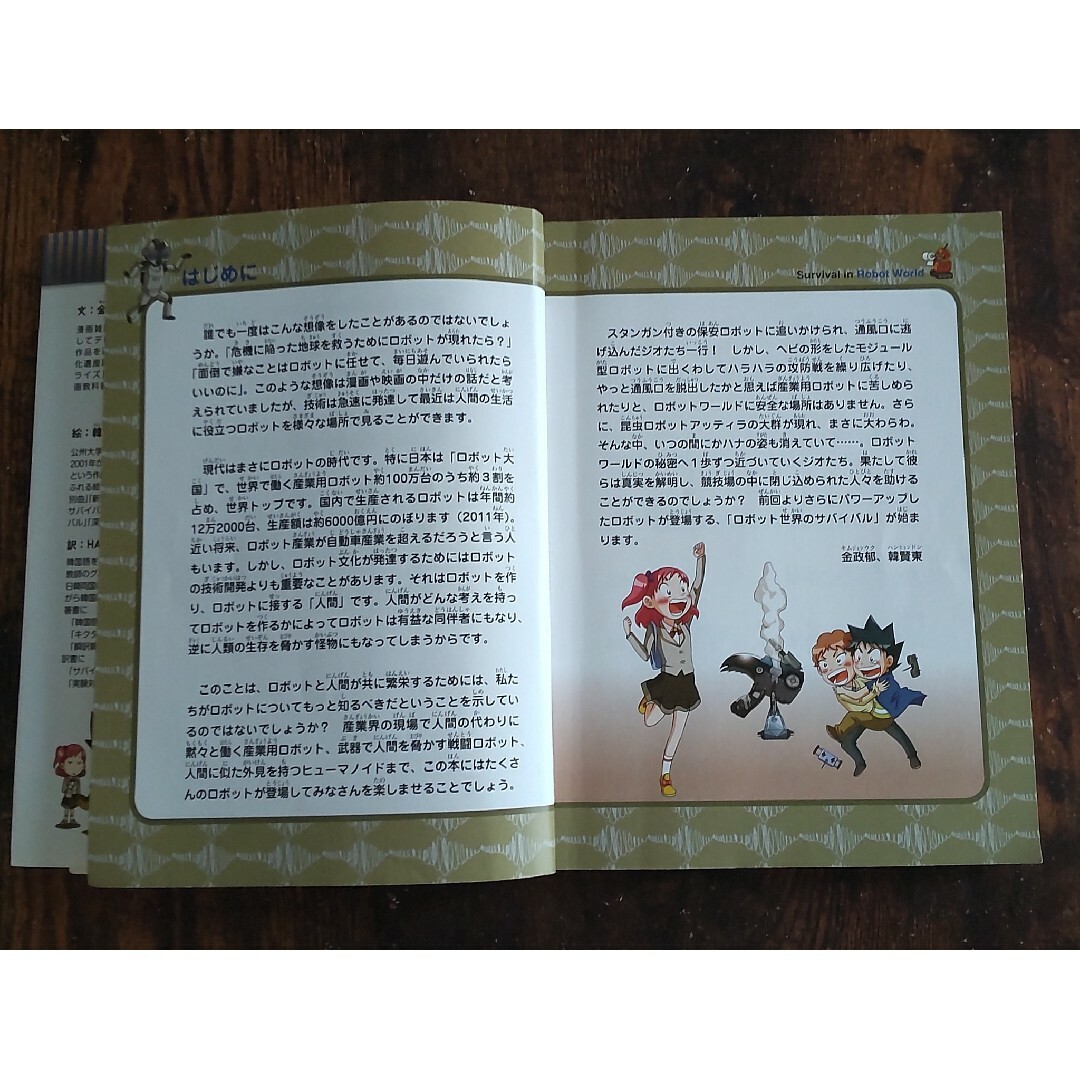 はじめに
誰でも一度はこんな想像をしたことがあるのではないでしょ
うか。「危機に陥った地球を救うためにロボットが現れたら？」
「面倒で嫌なことはロボットに任せて、毎日遊んでいられたら
いいのに」。このような想像は漫画や映画の中だけの話だと考
えられていましたが、技術は急速に発達して最近は人間の生活
に役立つロボットを様々な場所で見ることができます。
現代はまさにロボットの時代です。特に日本は「ロボット大
国」で、世界で働く産業用ロボット約100万台のうち約３割を
占め、世界トップです。国内で生産されるロボットは年間約
12万2000台、生産額は約6000億円にのぼります（2011年）。
近い将来、ロボット産業が自動車産業を超えるだろうと言う人
もいます。しかし、ロボット文化が発達するためにはロボット
の技術開発よりも重要なことがあります。それはロボットを作
り、ロボットに接する「人間」です。人間がどんな考えを持っ
てロボットを作るかによってロボットは有益な同伴者にもなり、
逆に人類の生存を脅かす怪物にもなってしまうからです。
このことは、ロボットと人間が共に繁栄するためには、私た
ちがロボットについてもっと知るべきだということを示してい
るのではないでしょうか？　産業界の現場で人間の代わりに
黙々と働く産業用ロボット、武器で人間を脅かす戦闘ロボット、
人間に似た外見を持つヒューマノイドまで、この本にはたくさ
んのロボットが登場してみなさんを楽しませることでしょう。
Survival in Robot World
スタンガン付きの保安ロボットに追いかけられ、通風口に逃
げ込んだジオたち一行！　しかし、ヘビの形をしたモジュール
型ロボットに出くわしてハラハラの攻防戦を繰り広げたり、
やっと通風口を脱出したかと思えば産業用ロボットに苦しめら
れたりと、ロボットワールドに安全な場所はありません。さら
に、昆虫ロボットアッティラの大群が現れ、まさに大わらわ。
そんな中、いつの間にかハナの姿も消えていて……。ロボット
ワールドの秘密へ１歩ずつ近づいていくジオたち。果たして彼
らは真実を解明し、競技場の中に閉じ込められた人々を助ける
ことができるのでしょうか？　前回よりさらにパワーアップし
たロボットが登場する、「ロボット世界のサバイバル」が始ま
ります。
金政郁、韓賢東
文：金
漫画雑
してデ
作品を
化遺産
ライズ
画教科
絵：韓
公州大学
2001年か
という作
ふれる絵
別曲』『新
サバイバ
バル』『深
訳：HA
韓国語を
教師のグ
日韓同国
がら韓国
著書に
「韓国
「キクタ
「翻訳
訳書に
「サバイ
「実験対